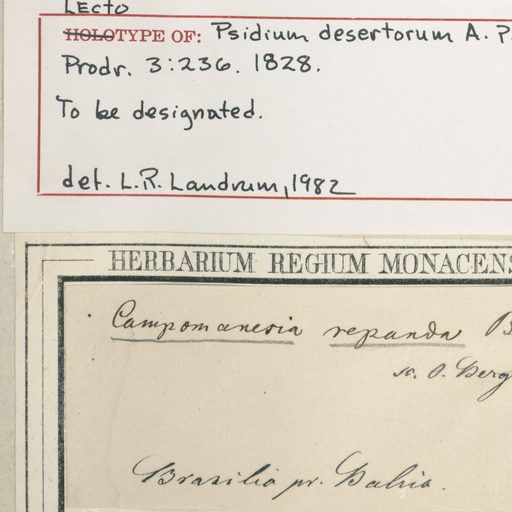 LECTO
HOLOTYPE OF: Psidium desertorum A. P.
Prodr. 3:236. 1828.
To be designated.
det. L.R. Landrum, 1982
HERBARIUM REGIUM MONACENS
Campomanesia repanda B
sc. O. Berg
Brasilia pr. Bahia.